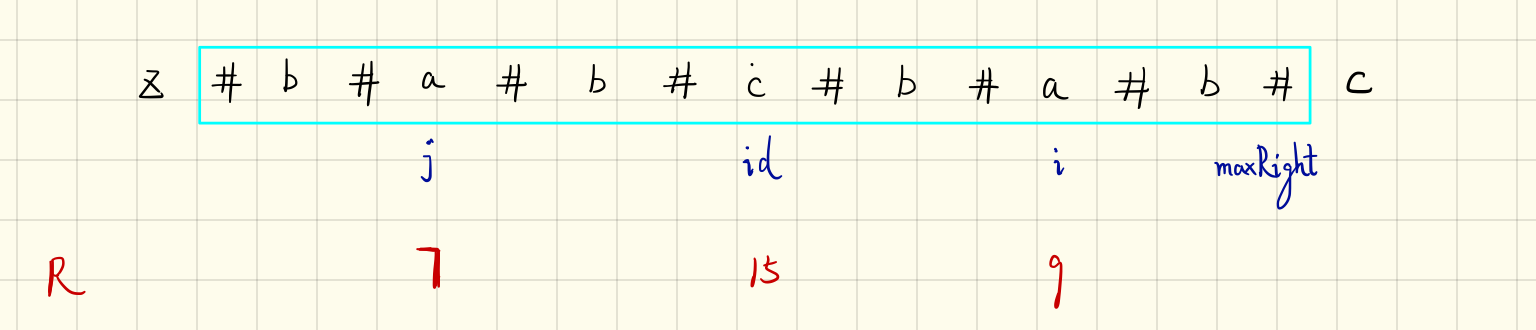 z # b # a # b # c # b # a # b # c
j id i maxRight
R 7 15 9